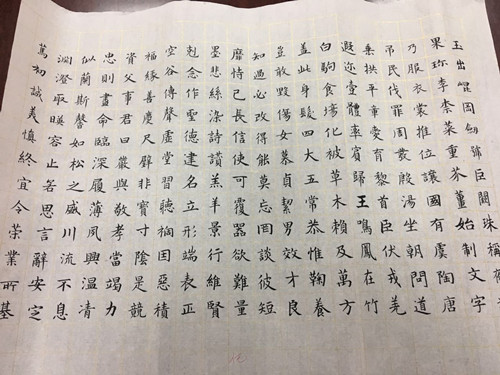 玉出崐岡劍號巨闕珠稱夜
果珍李柰菜重芥薑始制文字
乃服衣裳推位讓國有虞陶唐
弔民伐罪周發殷湯坐朝問道
垂拱平章愛育黎首臣伏戎羌
遐邇壹體率賓歸王鳴鳳在竹
白駒食場化被草木賴及萬方
蓋此身髮四大五常恭惟鞠養
豈敢毀傷女慕貞絜男效才良
知過必改得能莫忘罔談彼短
靡恃己長信使可覆器欲難量
墨悲絲染詩讚羔羊景行維賢
剋念作聖德建名立形端表正
空谷傳聲虛堂習聽禍因惡積
福緣善慶尺璧非寶寸陰是競
資父事君曰嚴與敬孝當竭力
忠則盡命臨深履薄夙興温凊
似蘭斯馨如松之盛川流不息
淵澄取暎容止若思言辭安定
篤初誠美慎終宜令榮業所基